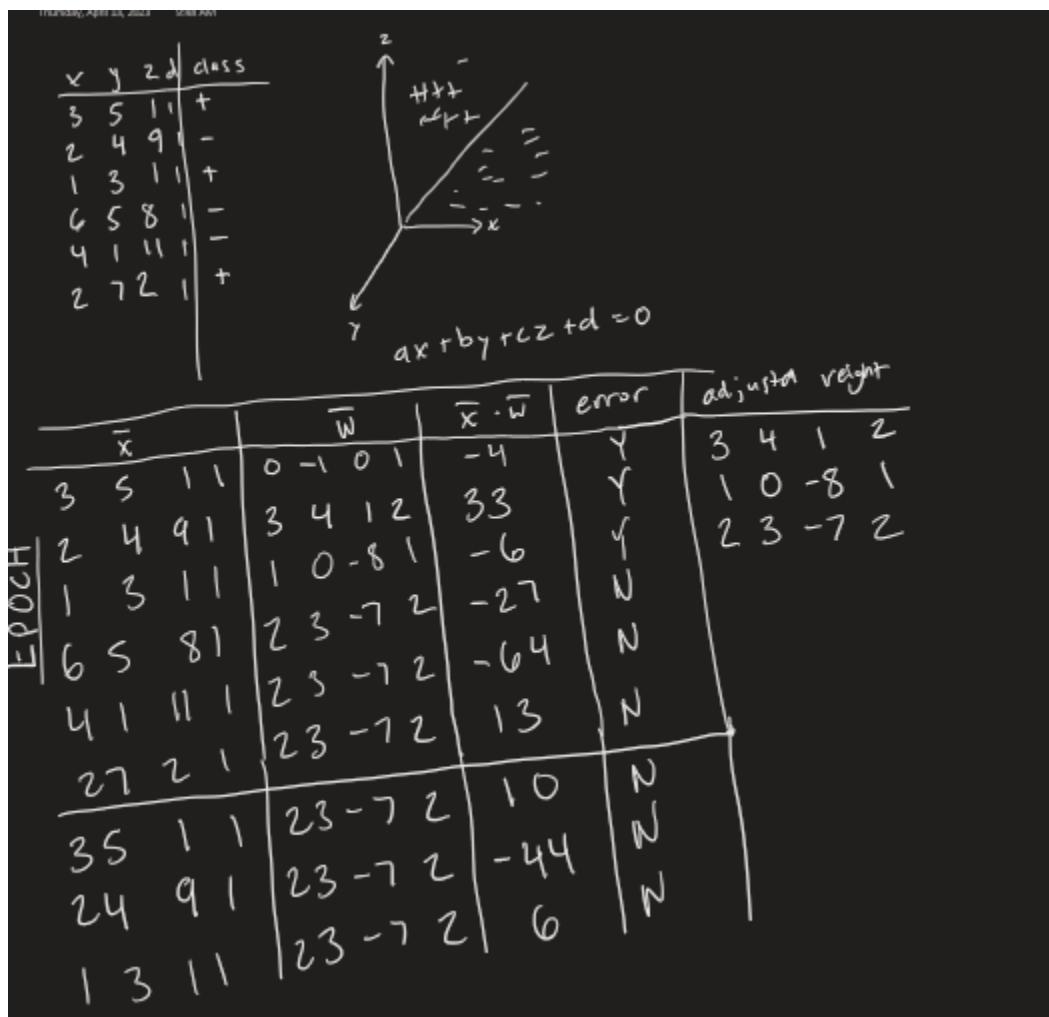 Thursday, April 13, 2023
x y z d class
3 5 1 1 +
2 4 9 1 -
1 3 1 1 +
6 5 8 1 -
4 1 11 1 -
2 7 2 1 +
z
x
y
ax + by + cz + d = 0
x̄ w̄ x̄ · w̄ error
3 5 1 1 0 -1 0 1 -4 Y 3 4 1 2
2 4 9 1 3 4 1 2 33 Y 1 0 -8 1
1 3 1 1 1 0 -8 1 -6 Y 2 3 -7 2
EPOCH
6 5 8 1 2 3 -7 2 -27 N
4 1 11 1 2 3 -7 2 -64 N
2 7 2 1 2 3 -7 2 13 N
3 5 1 1 2 3 -7 2 10 N
2 4 9 1 2 3 -7 2 -44 N
1 3 1 1 2 3 -7 2 6 N